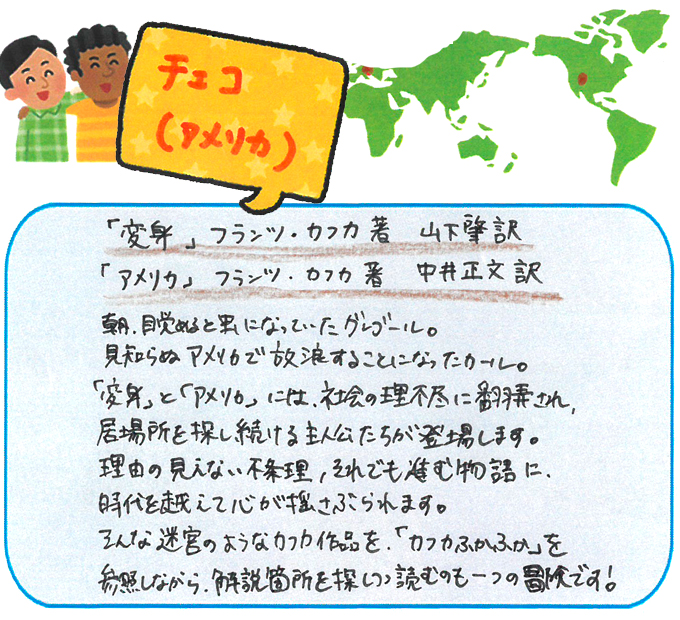 チェコ
(アメリカ)
「変身」フランツ・カフカ著 山下肇訳
「アメリカ」フランツ・カフカ著 中井正文訳
朝、目覚めると虫になっていたグレゴール。
見知らぬアメリカで放浪することになったカール。
「変身」と「アメリカ」には、社会の理不尽に翻弄され、
居場所を探し続ける主人公たちが登場します。
理由の見えない不条理、それでも進む物語に、
時代を越えて心が揺さぶられます。
そんな迷宮のようなカフカ作品を、「カフカふかふか」を
参照しながら、解説箇所を探しつつ読むのも一つの冒険です!